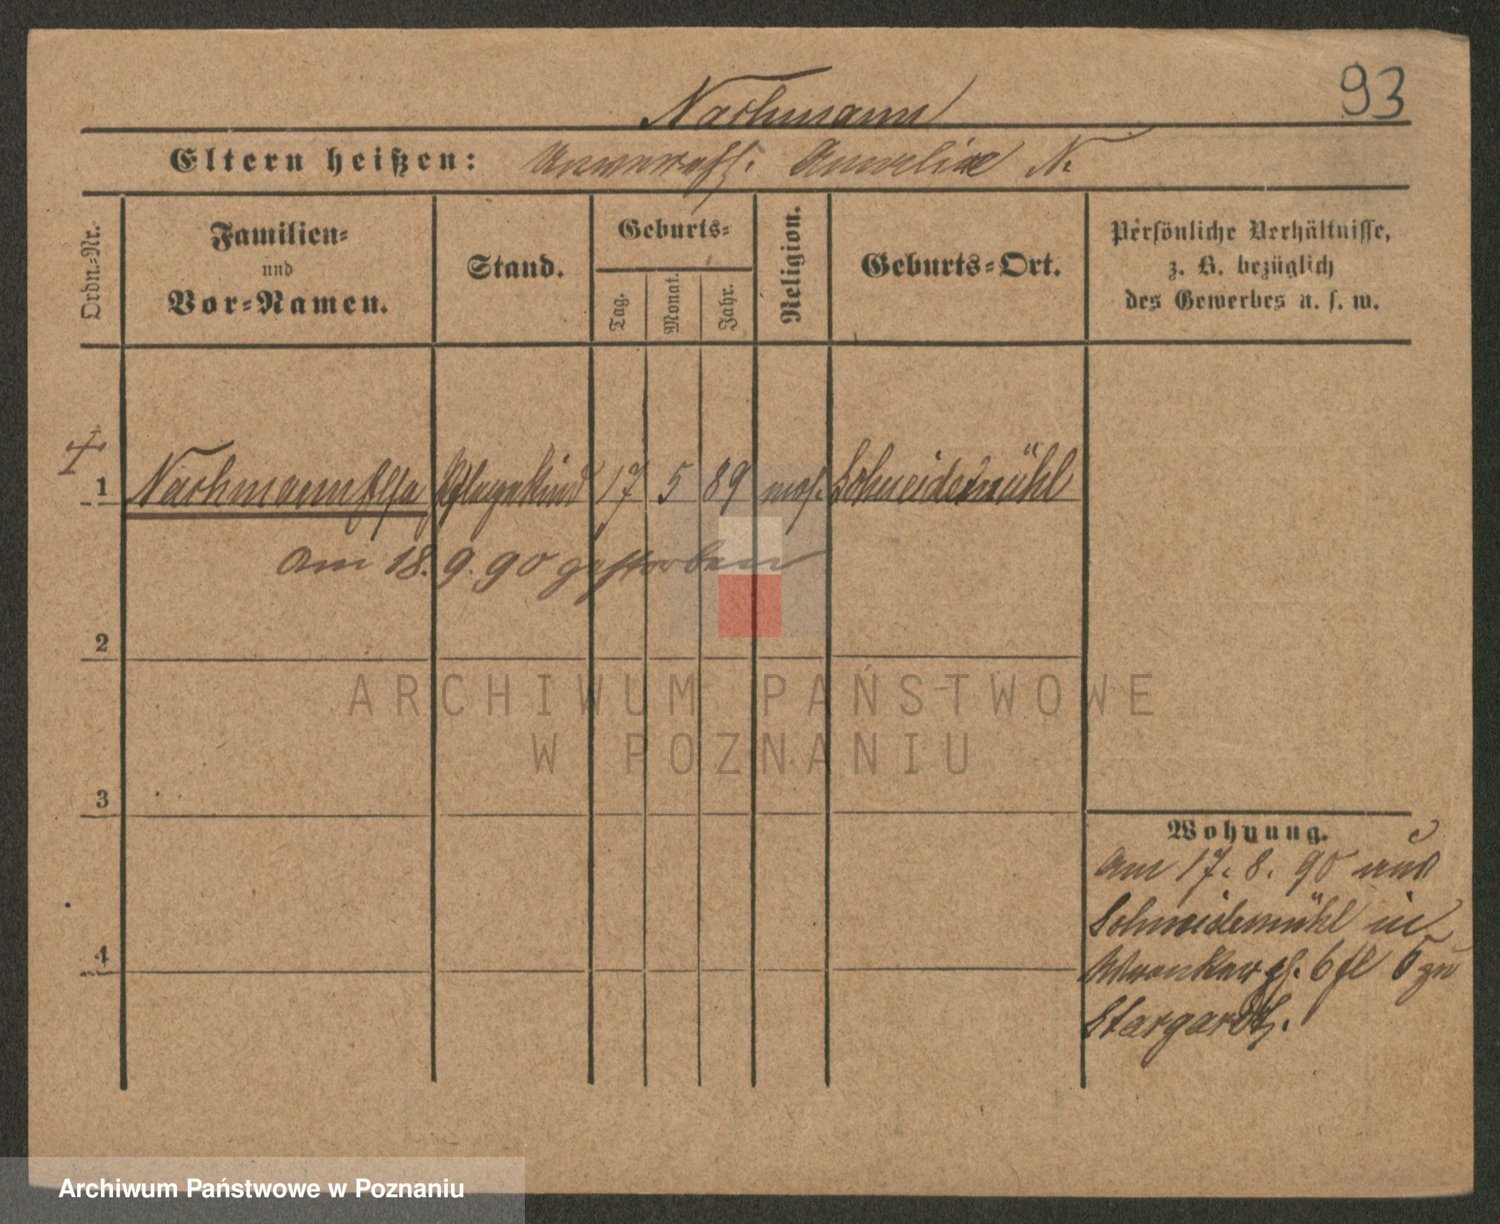 93
Nachmann
Eltern heißen: Unverehl. Amalie N.
Ordn.-Nr.
Familien-
und
Vor-Namen.
Stand.
Geburts-
Tag.
Monat.
Jahr.
Religion.
Geburts-Ort.
Persönliche Verhältnisse,
z. B. bezüglich
des Gewerbes u. s. w.
1 Nachmann Elsa Pflegekind 17 5 89 mos. Schneidemühl
am 18. 9. 90 gestorben
2
3
4
Wohnung.
am 17. 8. 90 aus
Schneidemühl in
6 zu
Stargardt.
ARCHIWUM PAŃSTWOWE
W POZNANIU
Archiwum Państwowe w Poznaniu